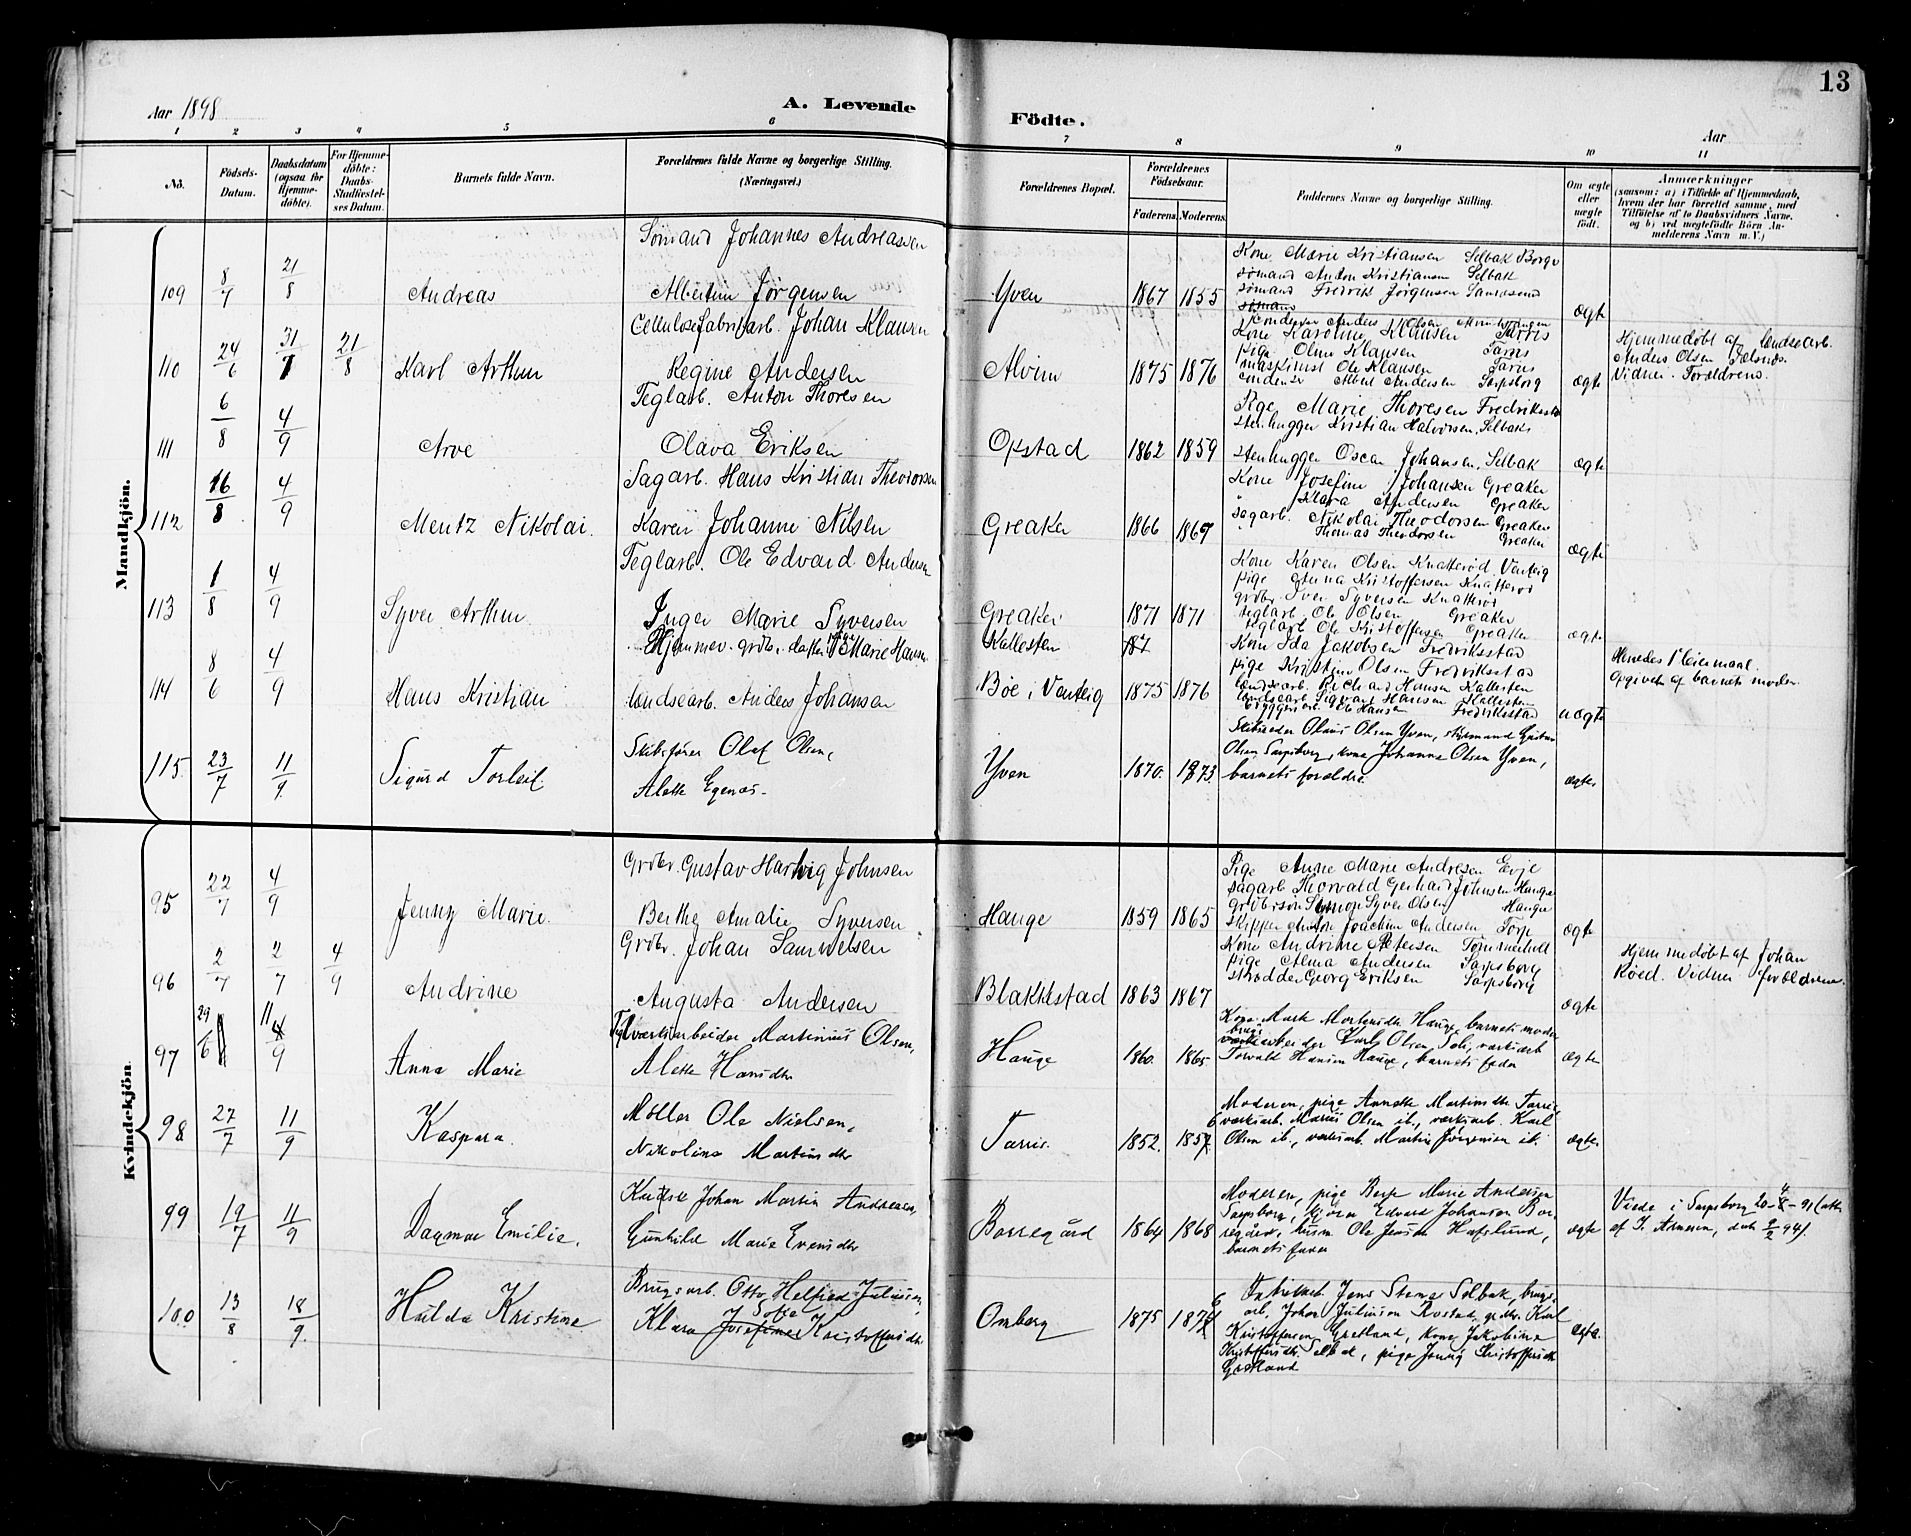 13
Aar 1898
A. Levende
Födte.
Aar
1 2 3 4 5 6 7 8 9 10 11
No.
Födsels-Datum.
Daabsdatum (ogsaa for Hjemmedöbte).
For Hjemmedöbte: Daabs-Stadfæstelses Datum.
Barnets fulde Navn.
Forældrenes fulde Navne og borgerlige Stilling.
(Næringsvei.)
Forældrenes Bopæl.
Forældrenes Födselsaar.
Faderens. Moderens.
Faddernes Navne og borgerlige Stilling.
Om ægte eller uægte födt.
Anmærkninger
(saasom: a) i Tilfælde af Hjemmedaab,
hvem der har forrettet samme, med
Tilföielse af to Daabsvidners Navne,
og b) ved uægtefödte Börn An-
melderens Navn m. V.)
Mandkjön.
109 8/7 21/8 Andreas
Sömand Johannes Andreassen
Albertine Jörgensen
Yven 1867 1855
Kone Marie Kristiansen Selbak Borge
sömand Anton Kristiansen Selbak
sömand Fredrik Jörgensen
ægte
110 24/6 31/7 21/8 Karl Arthur
Cellulosefabrikarb. Johan Klausen
Regine Andersen
Alvim 1875 1876
Kone Karoline Klausen Tarris
pige Oline Klausen Tarris
maskinist Ole Klausen Tarris
Albert Andersen Sarpsborg
ægte
Hjemmedöbt af landsearb.
Anders Olsen
Vidner: Forældrene.
111 6/8 4/9 Arve
Teglarb. Anton Thoresen
Olava Eriksen
Opstad 1862 1859
Pige Marie Thoresen Fredriksstad
stenhugger Kristian Halvorsen, Selbak
stenhugger Oscar Johansen, Selbak
ægte
112 16/8 4/9 Mentz Nikolai.
Sagarb. Hans Kristian Theodorsen
Karen Johanne Nilsen
Greaker 1866 1867
Kone Josefine Johansen Greaker
" Klara Andersen Greaker
sagarb. Nikolai Theodorsen Greaker
Thomas Theodorsen Greaker
ægte
113 1/8 4/9 Syver Arthur
Teglarb. Ole Edvard Andersen
Inger Marie Syversen
Greaker 1871 1871
Kone Karen Olsen Knatteröd Varteig
pige Anna Kristoffersen Knatteröd
grdbr Iver Syversen Knatteröd
teglarb. Ole Olsen Greaker
teglarb Ole Kristoffersen Greaker
ægte
114 8/6 4/9 Hans Kristian
Hjemmev. grdbr. datter Marie Hansen
landsearb. Anders Johansen
Kallesten
Böe i Varteig 1875 1876
Kone Ida Jakobsen Fredriksstad
pige Kristine Olsen Fredriksstad
landsearb. Richard Hansen Kallesten
landsearb. Sigvart Hansen Kallesten
Ole Hansen Fredriksstad
uægte
Hendes 1ste leiermaal.
Opgivet af barnets moder.
115. 23/7 11/9. Sigurd Torleif
Skibsförer Olaf Olsen,
Alette Egenæs.
Yven 1870. 1873.
Skibsreder Olaus Olsen Yven, styrmand Gustav
Olsen Sarpsborg, kone Johanna Olsen Yven,
barnets forældre.
ægte.
Kvindekjön.
95 22/7 4/9 Jenny Marie.
Grdbr. Gustav Hartvig Johnsen
Berthe Amalie Syversen
Hauge 1859 1865
Pige Anne Marie Andresen Evje
sagarb Thorvald Gerhard Johnsen Hauge
grdbrsön Simon Syver Olsen Hauge
skipper Anton Joachim Andersen Torp
ægte
96 2/7 2/7 4/9 Andrine
Grdbr. Johan Samuelsen
Augusta Andersen
Blakkestad 1863 1867
Kone Andrine Petersen Tömmerholt
pige Alma Andersen Sarpsborg
skrædder Georg Eriksen Sarpsborg
ægte
Hjemmedöbt af Johan
Röed. Vidner forældrene.
97 29/6 11/9 Anna Marie
Teglværksarbeider Martinius Olsen,
Alette Hansdtr
Hauge 1860. 1865.
Kone Marte Mortensdtr Hauge, barnets moder
Karl Olsen Sol, værksarb
Torvald Hansen Hauge, barnets fader
ægte
98 27/7 11/9 Kaspara.
Möller Ole Nielsen,
Nikoline Martinsdtr
Tarris. 1852. 1856
Moderen, pige Annette Martinsdtr Tarris,
værksarb. Marius Olsen ib., værksarb. Karl
Olsen ib., værksarb. Martin Jörgensen ib.
ægte.
99 19/7 11/9 Dagmar Emilie.
Kudsk Johan Martin Andreasen,
Gunhilde Marie Evensdtr
Borregård 1864 1868
Moderen, pige Marie Andersen
Sarpsborg, Edvard Johansen Bor-
regård, husm Ole Jensen Hafslund,
barnets fader
ægte
Viede i Sarpsborg 20-4-91 (att.
af J. Arnesen, dat. 9/2-94).
100 13/8 18/9. Hulda Kristine
Brugsarb. Otto Helfred Juliussen,
Klara Josefine Sofie Kristoffersdtr
Omberg 1875 1876
Fabrikarb Jens Stene Selbak, brugs-
arb. Johan Juliussen Rostad, grdbr. Karl
Kristoffersen Gretland, kone Jakobine
Kristoffersdtr. Selbak, pige Jenny Kristoffersdtr
Gretland
ægte.